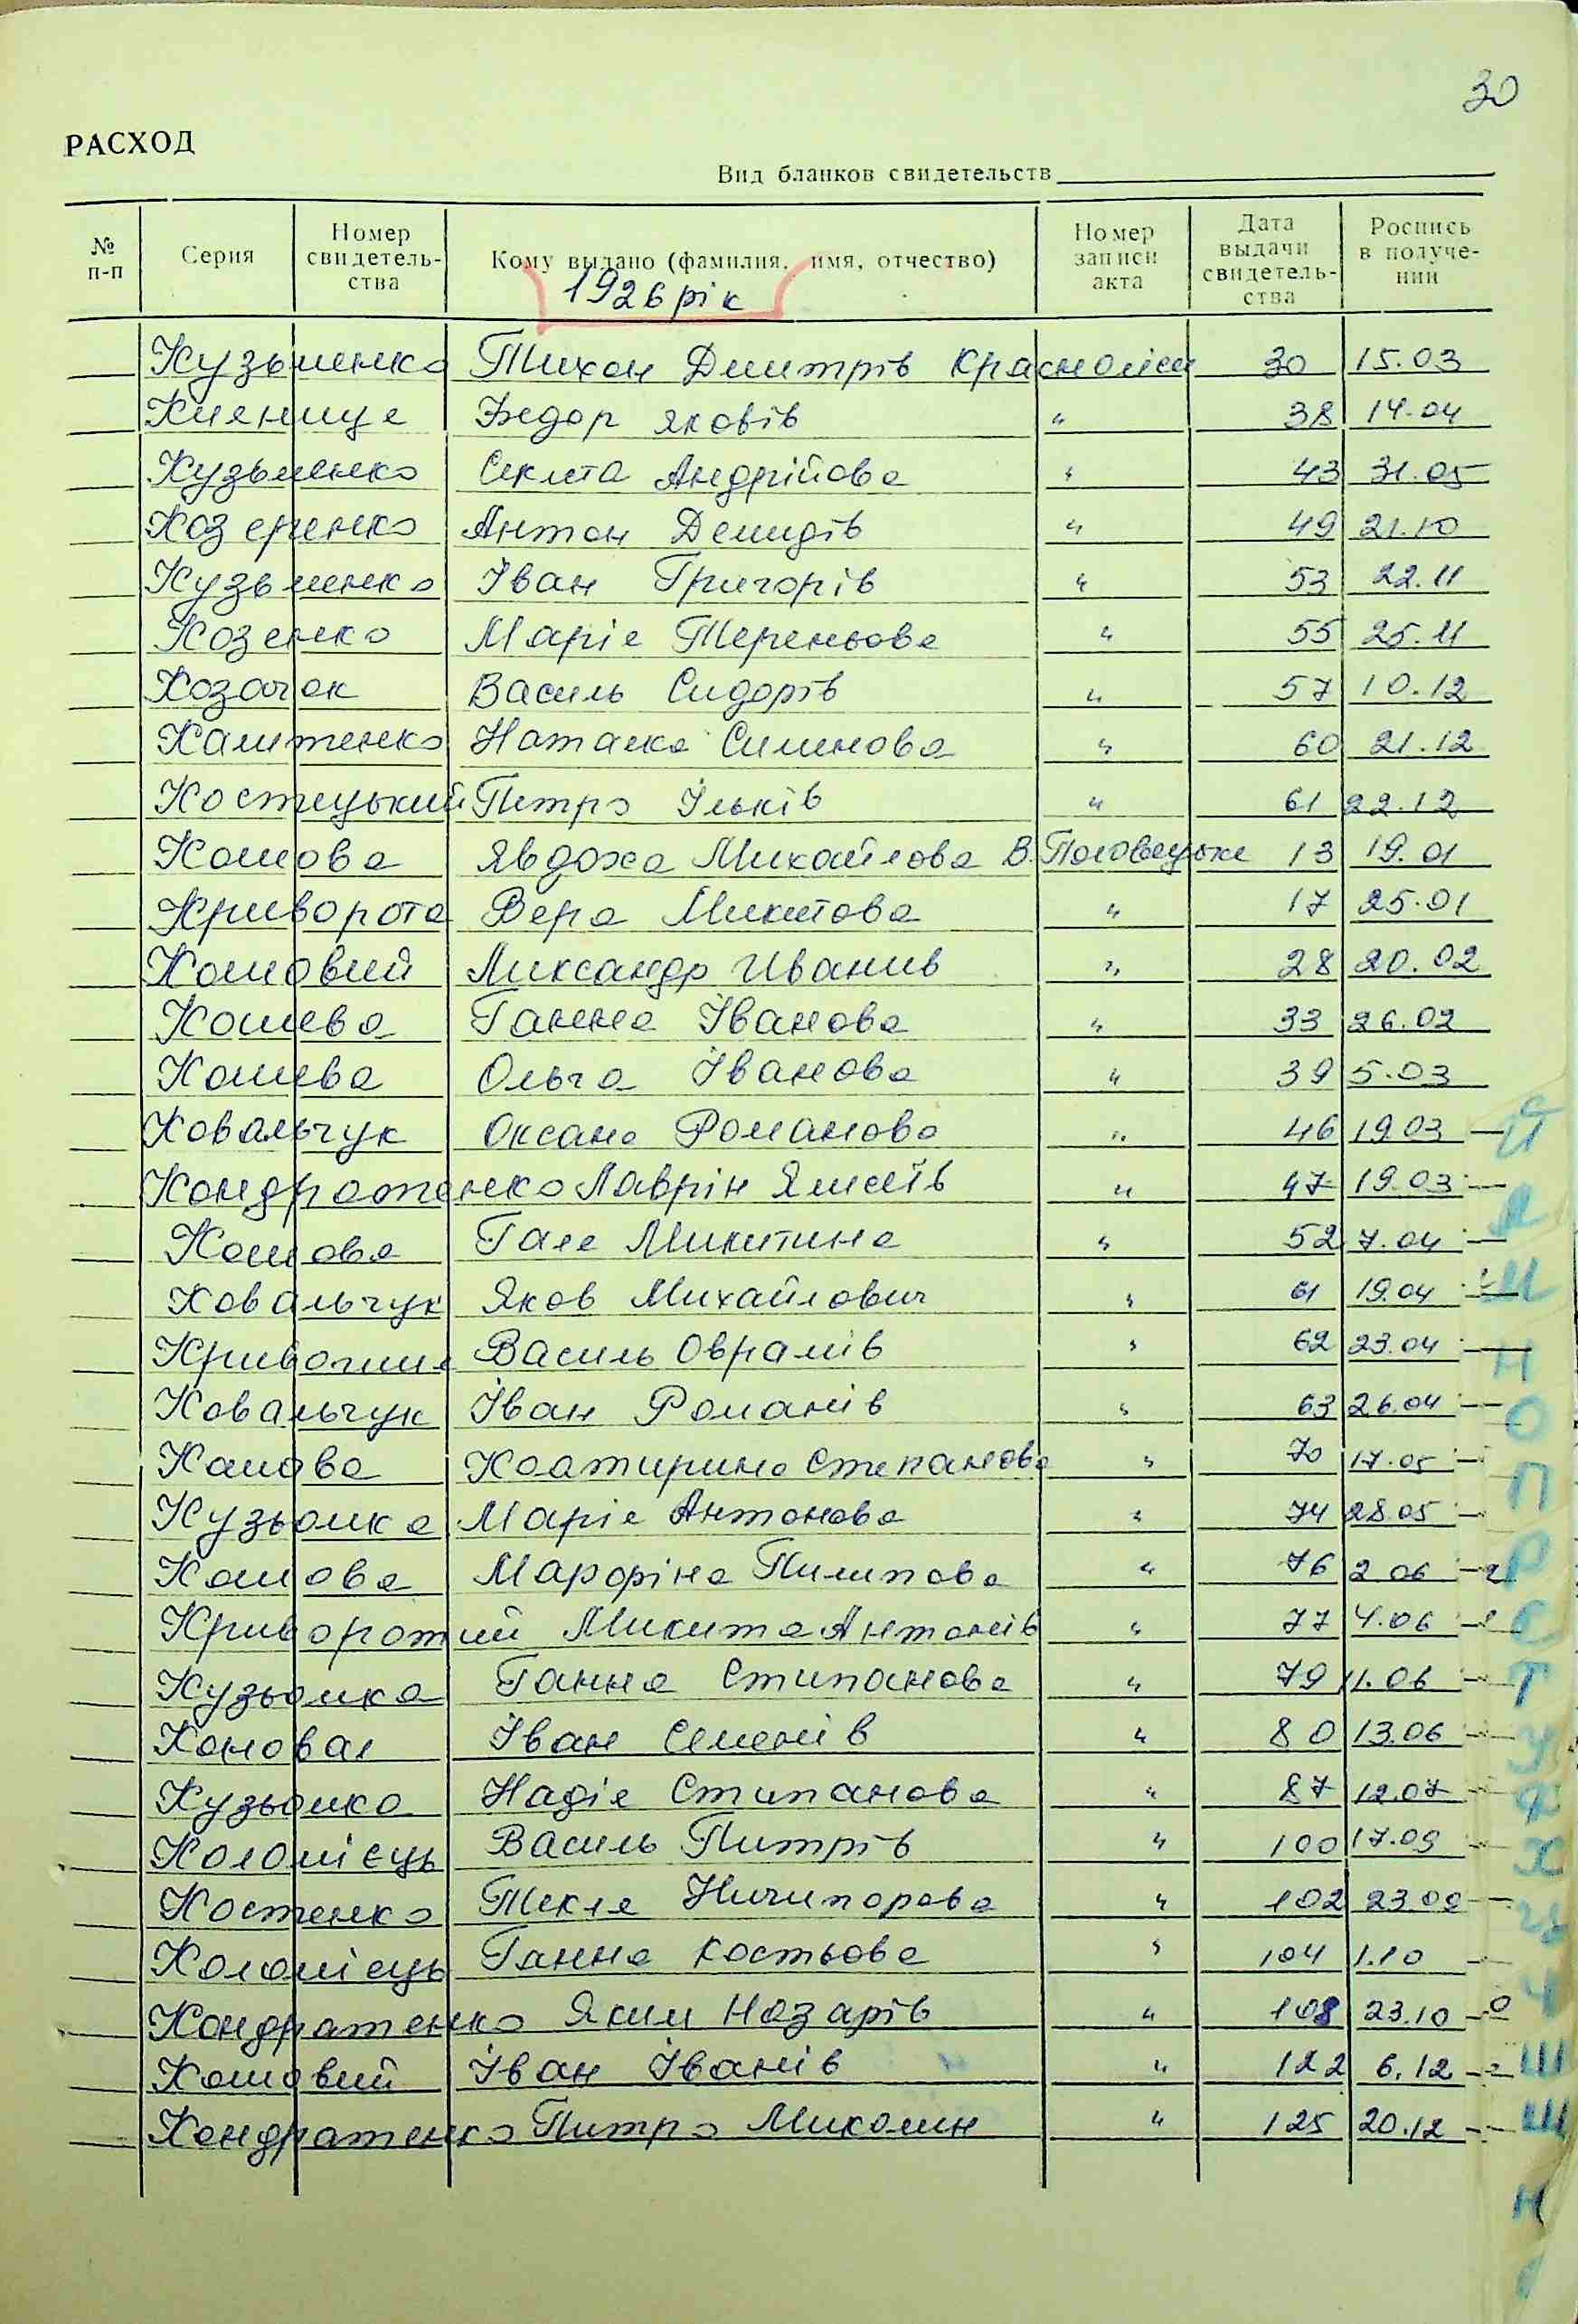 30
РАСХОД
Вид бланков свидетельств
№ п-п Серия Номер свидетель-ства Кому выдано (фамилия, имя, отчество) Номер записи акта Дата выдачи свидетель-ства Роспись в получе-нии
1926 рік
Кузьменко Тихон Дмитрів 30 15.03
Княнице Федор Яковів " 38 14.04
Кузьменко Секлета Андрійова " 43 31.05
Козеренко Антон Демидів " 49 21.10
Кузьменко Іван Григорів " 53 22.11
Козенко Марія Тереньова " 55 25.11
Козачок Василь Сидорів " 57 10.12
Калитенко Наталка Сименова " 60 21.12
Костецький Петро Ільків " 61 22.12
Кошова Явдоха Михайлова В. Половецьке 13 19.01
Криворота Вера Микитова " 17 25.01
Кошовий Ликсандр Иванив " 28 20.02
Кошева Ганна Іванова " 33 26.02
Кошева Ольга Іванова " 39 5.03
Ковальчук Оксана Романова " 46 19.03
Кондратенко Лаврін " 47 19.03
Кошова Галя Микитина " 52 7.04
Ковальчук Яков Михайлович " 61 19.04
Василь Оврамів " 62 23.04
Ковальчук Іван Романів " 63 26.04
Кашова Катирина Степанова " 70 17.05
Кузьомка Марія Антонова " 74 28.05
Кошова Марфіна Пилипова " 76 2.06
Криворотий Микита Антонів " 77 4.06
Кузьомка Ганна Стипанова " 79 11.06
Коновал Іван Семенів " 80 13.06
Кузьомка Надія Стипанова " 87 12.07
Коломієць Василь Питрів " 100 17.09
Костенко Текля Ничипорова " 102 23.09
Коломієць Ганна Костьова " 104 1.10
Кондратенко Яким Назарів " 108 23.10
Кошовий Іван Іванів " 122 6.12
Кондратенко Питро Миколин " 125 20.12